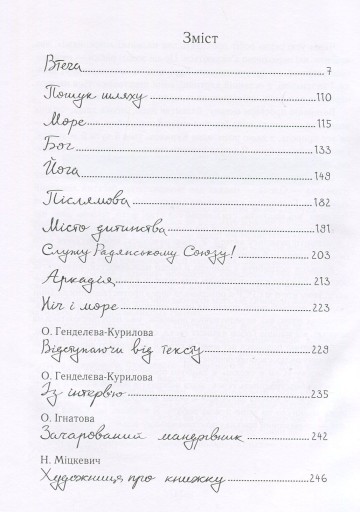 Зміст
Втеча 7
Пошук шляху 110
Море 115
Бог 133
Йога 149
Післямова 182
Місто дитинства 191
Служу Радянському Союзу! 203
Аркадія 213
Ніч і море 223
О. Генделєва-Курилова
Відступаючи від тексту 229
О. Генделєва-Курилова
Із інтерв'ю 235
О. Ігнатова
Зачарований мандрівник 242
Н. Міцкевич
Художниця про книжку 246